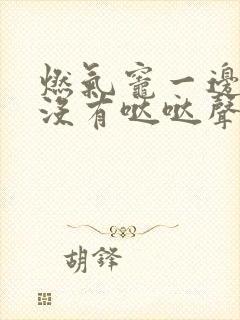 燃氣竈一邊
沒有哒哒聲
胡鋒